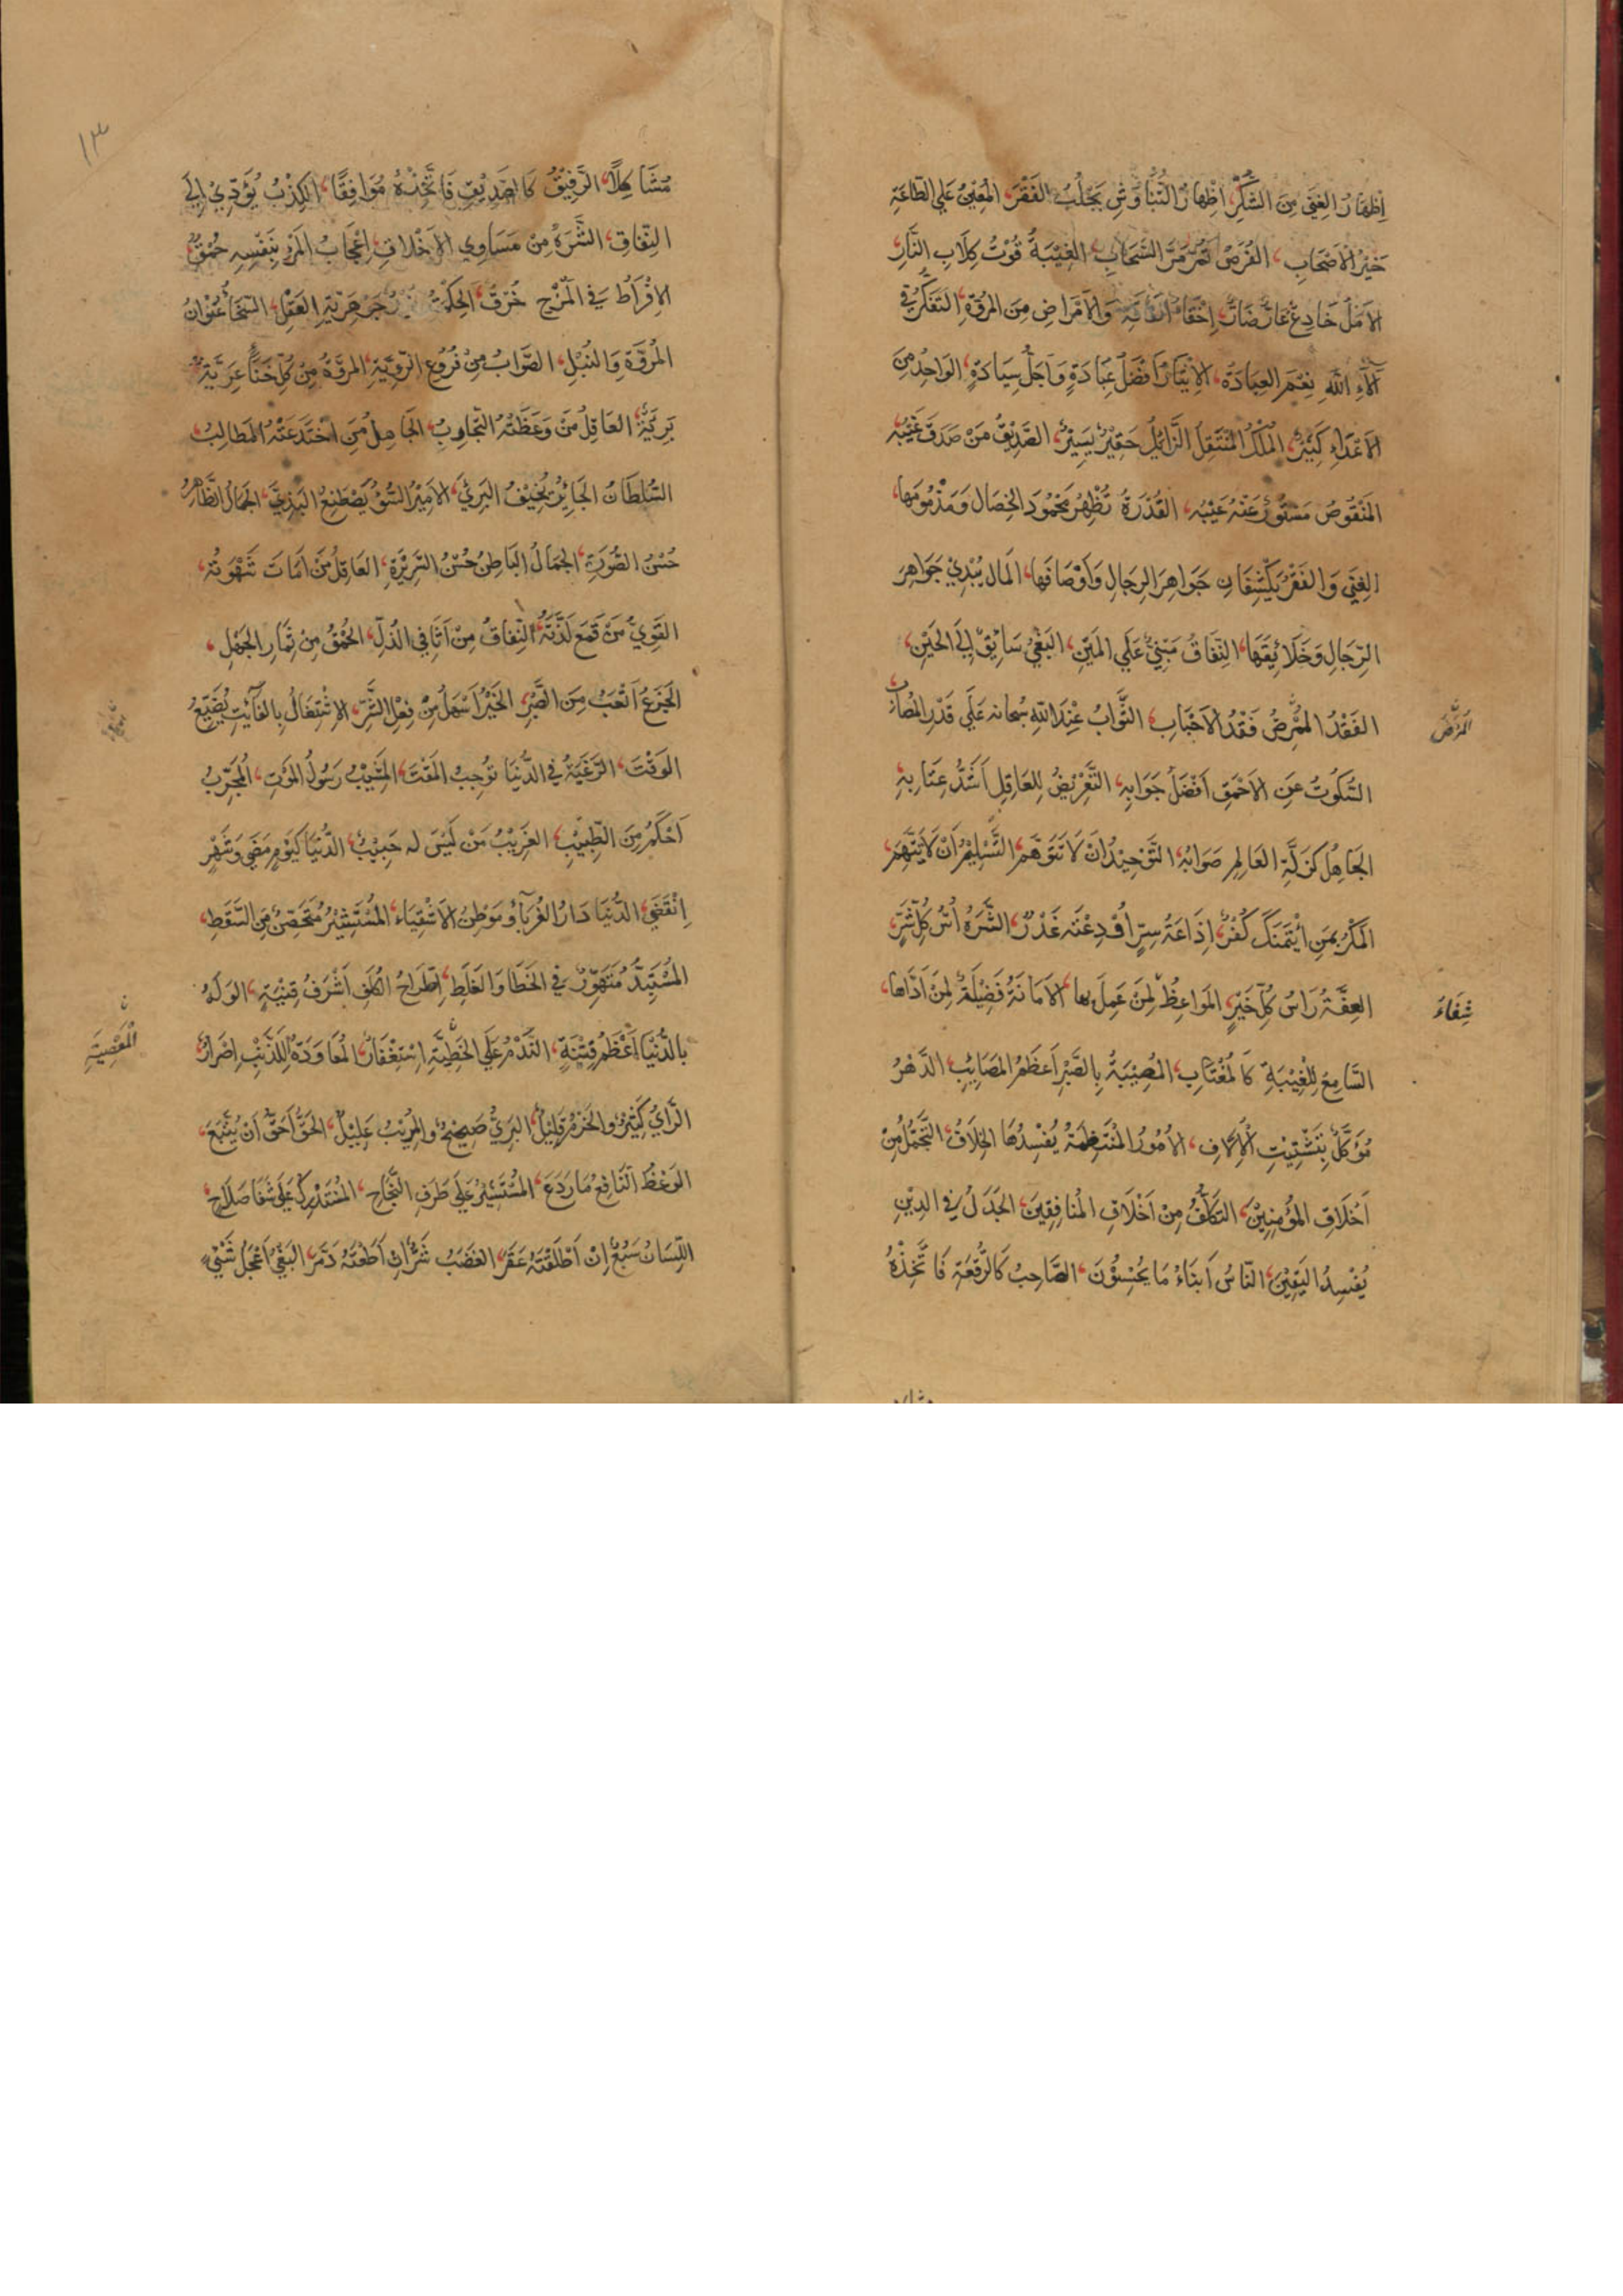 اِظهَارُ الغِنَي مِنَ الشُّكْرِ، اِظْهَارُ التَّبَاؤُسِ يَجْلُبُ الفَقْرَ، المُعِيْنُ عَلي الطَّاعَةِ
خَيْرُ الاَصْحَابِ، الفُرَصُ تَمُرُّ مَرَّ السَّحَابِ، الغِيْبَةُ قُوْتُ كِلَابِ النَّارِ
الاَمَلُ خَادِعٌ غَارٌّ ضَارٌّ، اِخْفَاءُ الفَاقَةِ وَالاَمْرَاضِ مِنَ المُرُوَّةِ، التَفَكُّرُ فِي
آلَاءِ اللهِ نِعْمَ العِبَادَةُ، الاِيْثَارُ اَفْضَلُ عِبَادَةٍ وَاَجَلُّ سِيَادَةٍ، الوَاحِدُ مِنَ
الاَعْدَاءِ كَثِيْرٌ، المُلْكُ المُنْتَقِلُ الزَّائِلُ حَقِيْرٌ يَسِيْرٌ، الصَّدِيْقُ مَنْ صَدَقَ غَيْبُهُ
المَنْقُوصُ مَسْتُوْرٌ عَنْهُ عَيْبُهُ، القُدْرَةُ تُظْهِرُ مَحْمُودَ الخِصَالِ وَمَذْمُومَهَا،
الغِنَي وَالفَقْرُ يَكْشِفَانِ جَوَاهِرَ الرِجَالِ وَاَوْصَافَهَا، المَالُ يُبْدِيْ جَوَاهِرَ
الرِّجَالِ وَخَلَائِقَهَا، النِّفَاقُ مَبْنِيٌّ عَلَي المَيْنِ، البَغْيُ سَائِقٌ اِلَي الحَيْنِ،
الفَقْدُ المُمْرِضُ فَقْدُ الاَحْبَابِ، الثَّوَابُ عِنْدَ اللهِ سُبحانه عَلَي قَدْرِ المُصَابِ
المُرْمِضُ
السُّكُوْتُ عَنِ الاَحْمَقِ اَفْضَلُ جَوَابِهِ، التَّعْرِيْضُ لِلعَاقِلِ اَشَدُّ عِتَابِهِ
الجَاهِلُ كَزَلَّةِ العَالِمِ صَوَابُهُ، التَّوْحِيْدُ اَنْ لَا تَتَوَهَّمَ، التَّسْلِيْمُ اَنْ لَا تَتَّهِمَ،
المَكْرُ بِمَنِ اْيْتَمَنَكَ كُفْرٌ، اِذَاعَةُ سِرٍّ اُوْدِعْتَه غَدْرٌ، الشَّرَهُ اُسُّ كُلِّ شَرٍّ،
العِفَّةُ رَاسُ كُلِّ خَيْرٍ، المَوَاعِظُ لِمَنْ عَمِلَ بها، الاَمَانَةُ فَضِيْلَةٌ لِمَنْ اَدَّاهَا،
شِفَاءٌ
السَّامِعُ لِلْغِيْبَةِ كَالمُغْتَابِ، المُصِيْبَةُ بِالصَّبْرِ اَعْظَمُ المَصَايِبِ، الدَّهْرُ
مُوَكَّلٌ بِتَشْتِيْتِ الاُلَّافِ، الاُمُوْرُ المُنْتَظِمَةُ يُفْسِدُهَا الخِلَافُ، التَّجَمُّلُ مِنْ
اَخْلَاقِ المُؤْمِنِيْنَ، التَكَلُّفُ مِنْ اَخْلَاقِ المُنَافِقِيْنَ، الجَدَلُ فِي الدِيْنِ
يُفْسِدُ اليَقِيْنَ، النَّاسُ اَبنَاءُ مَا يُحْسِنُوْنَ، الصَّاحِبُ كَالرُّقْعَةِ فَاتَّخِذْهُ
١٣
مُشَاكِلاً، الرَّفِيْقُ كَالصَّدِيْقِ فَاتَّخِذْهُ مُوَافِقًا، الكِذْبُ يُؤَدِّيْ اِلَي
النِّفَاقِ، الشَّرَهُ مِنْ مَسَاوِي الاَخْلَاقِ، اِعْجَابُ المَرْءِ بِنَفْسِهِ حُمْقٌ،
الاِفْرَاطُ فِي المَزْحِ خُرْقٌ، العَقْلِ، السَّخَاءُ عُنْوَانُ
المُرُوَّةِ وَالنُبْلِ، الصَّوَابُ مِنْ فُرُوعِ الرَّوِيَّةِ، المُرُوَّةُ مِنْ كُلِّ خَنَاءٍ عَرِيَّةٌ
بَرِيَّةٌ، العَاقِلُ مَنْ وَعَظَتْهُ التَّجَارِبُ، الجَاهِلُ مَنِ اخْتَدَعَتْهُ المَطَالِبُ
السُّلْطَانُ الجَائِرُ يُخِيْفُ البَرِيَّ، الاَمِيْرُ السُّوْءُ يَصْطَنِعُ البَذِيَّ، الجَمَالُ الظَّاهِرُ
حُسْنُ الصُّوْرَةِ، الجَمَالُ البَاطِنُ حُسْنُ السَّرِيْرَةِ، العَاقِلُ مَنْ اَمَاتَ شَهْوَتَهُ،
القَوِيُّ مَنْ قَمَعَ لَذَّتَهُ، النِّفَاقُ مِنْ اَثَافِي الذُّلِّ، الحُمْقُ مِنْ ثِمَارِ الجَهْلِ،
الجَزَعُ اَتْعَبُ مِنَ الصَّبْرِ، الخَيْرُ اَسْهَلُ مِنْ فِعْلِ الشَّرِّ، الاِشْتِغَالُ بِالفَائِتِ يُضَيِّعُ
الوَقْتَ، الرَّغْبَةُ فِي الدُّنْيَا تُوْجِبُ المَقْتَ، المَشِيْبُ رَسُوْلُ المَوْتِ، المُجَرِّبُ
اَحْكَمُ مِنَ الطَّبِيْبِ، الغَرِيْبُ مَنْ لَيْسَ له حَبِيْبٌ، الدُّنْيَا كَيَوْمٍ مَضَي وَشَهْرٍ
اِنْقَضَي، الدُّنْيَا دَارُ الغُرَبَاءِ وَمَوْطِنُ الاَشْقِيَاءِ، المُسْتَشِيْرُ مُتَحَصِّنٌ مِنَ السَّقَطِ،
المُسْتَبِدُّ مُتَهَوِّرٌ فِي الخَطَاءِ وَالغَلَطِ، اِطِّرَاحُ الكُلَفِ اَشْرَفُ قِنْيَةٍ، الوَلَهُ
بِالدُّنْيَا اَعْظَمُ فِتْنَةٍ، النَّدَمُ عَلَي الخَطِيَّةِ اِسْتِغْفَارٌ، المُعَاوَدَةُ لِلذَّنْبِ اِصْرَارٌ
المَعْصِيَةِ ن
الرَّايُ كَثِيْرٌ وَالحَزْمُ قَلِيْلٌ، البَرِيُّ صَحِيْحٌ وَالمُرِيْبُ عَلِيْلٌ، الحَقُّ اَحَقُّ اَنْ يُتَّبَعَ،
الوَعْظُ النَّافِعُ مَا رَدَعَ، المُسْتَشِيْرُ عَلَي طَرَفِ النَّجَاحِ، المُسْتَدْرِكُ عَلَي شَفَا صَلَاحٍ،
اللِّسَانُ سَبُعٌ اِنْ اَطْلَقْتَهُ عَقَرَ، الغَضَبُ شَرٌّ اِنْ اَطَعْتَهُ دَمَّرَ، البَغْيُ اَعْجَلُ شَيْءٍ